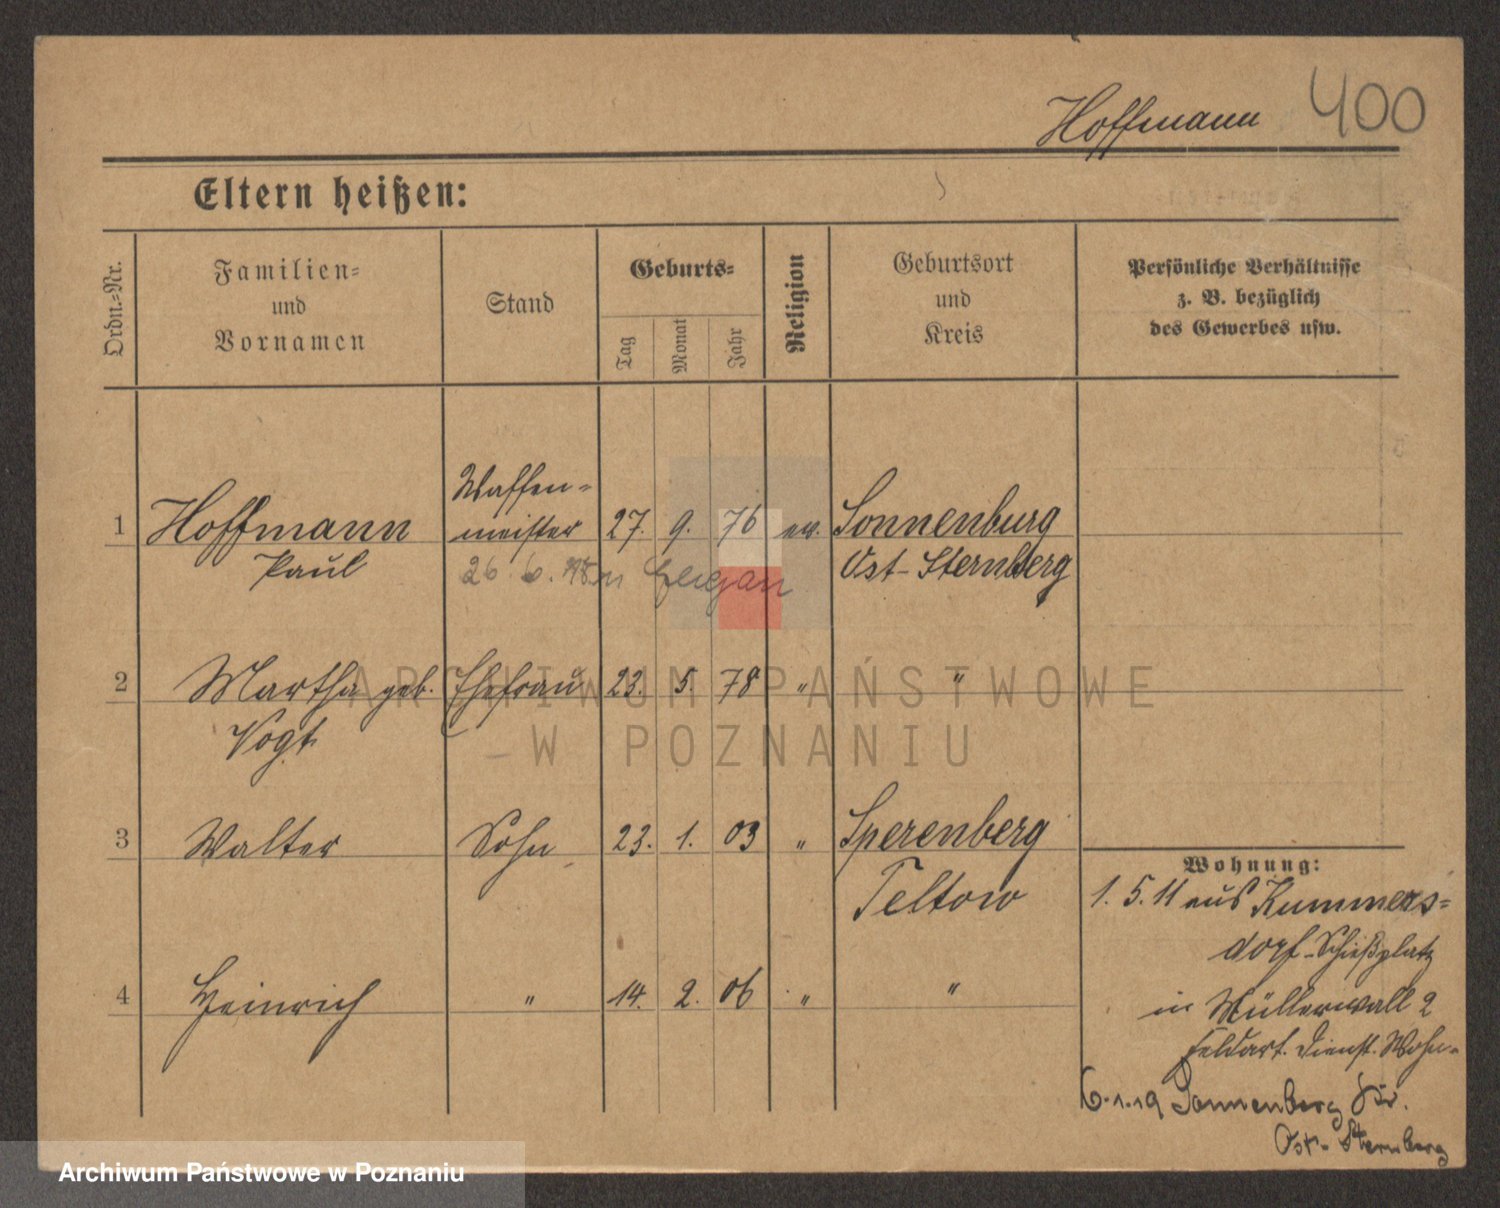 Hoffmann 400
Eltern heißen:
Ordn.-Nr.
Familien-
und
Vornamen
Stand
Geburts-
Tag
Monat
Jahr
Religion
Geburtsort
und
Kreis
Persönliche Verhältnisse
z. B. bezüglich
des Gewerbes usw.
Waffen-
1 Hoffmann meister 27. 9. 76 ev. Sonnenburg
Paul 26. 6. Ost-Sternberg
2 Martha geb. Ehefrau 23. 5. 78 " "
Vogt
3 Walter Sohn 23. 1. 03 " Sperenberg
Teltow
4 Heinrich " 14. 2. 06 " "
Wohnung:
1. 5. 11 aus Kummers-
dorf-Schießplatz
in Müllerwall 2
Feldart. Dienst. Wohn-
6.1.19 Sonnenberg Kr.
Ost-Sternberg
ARCHIWUM PAŃSTWOWE
W POZNANIU
Archiwum Państwowe w Poznaniu